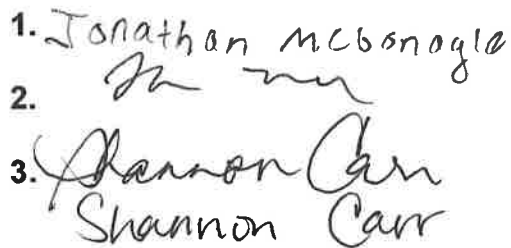 1. Jonathan McDonagle
2.
3. Shannon Carr
Shannon Carr